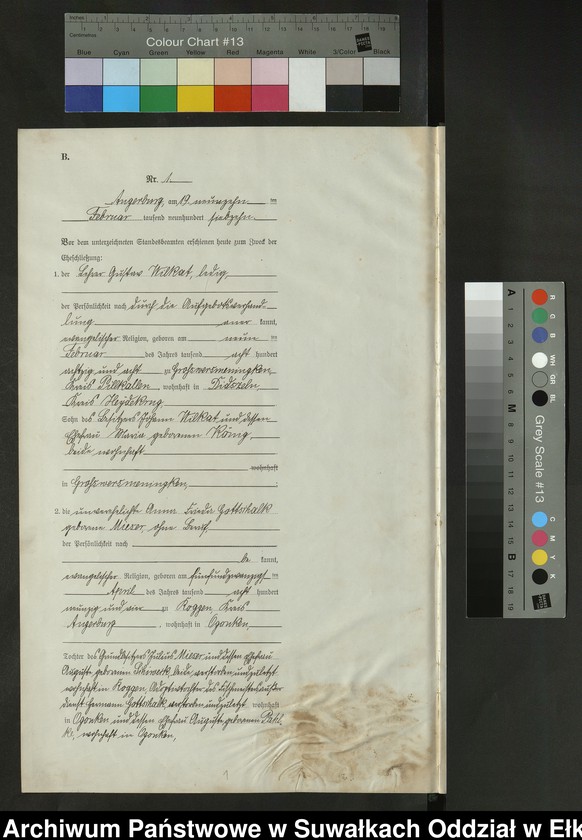 Colour Chart #13
Centimetres
Blue Cyan Green Yellow Red Magenta White 3/Color Black
B.
Nr. 1
Angerburg, am 19 neunzehn ten
Februar tausend neunhundert siebzehn.
Vor dem unterzeichneten Standesbeamten erschienen heute zum Zweck der
Eheschließung:
1. der Lehrer Gustav Wilkat, ledig,
der Persönlichkeit nach durch die Aufgebotsverhand-
lung aner kannt,
evangelischer Religion, geboren am neun ten
Februar des Jahres tausend acht hundert
achtzig und acht zu Großwersmeningken,
Kreis Pillkallen, wohnhaft in
Kreis Heydekrug.
Sohn des Besitzers Johann Wilkat und dessen
Ehefrau Maria geborenen König,
beide wohnhaft
wohnhaft
in Großwersmeningken.
2. die unverehelichte Anna Frieda Gottschalk
geborene Mierer, ohne Beruf,
der Persönlichkeit nach
be kannt,
evangelischer Religion, geboren am fünfundzwanzigs ten
April des Jahres tausend acht hundert
neunzig und vier zu Roggen, Kreis
Angerburg, wohnhaft in Ogonken,
Tochter des Grundbesitzers Julius Mierer und dessen Ehefrau
Auguste geborenen beide verstorben und zuletzt
wohnhaft in Roggen, Adoptivtochter des
Hermann Gottschalk, verstorben und zuletzt wohnhaft
in Ogonken und dessen Ehefrau Auguste geborenen
wohnhaft in Ogonken,
1
A 1 2 3 4 5 6 M 8 9 10 11 12 13 14 15 B 17 18 19
R G B WH GR BL
Grey Scale #13
C M Y K
Archiwum Państwowe w Suwałkach Oddział w Ełk